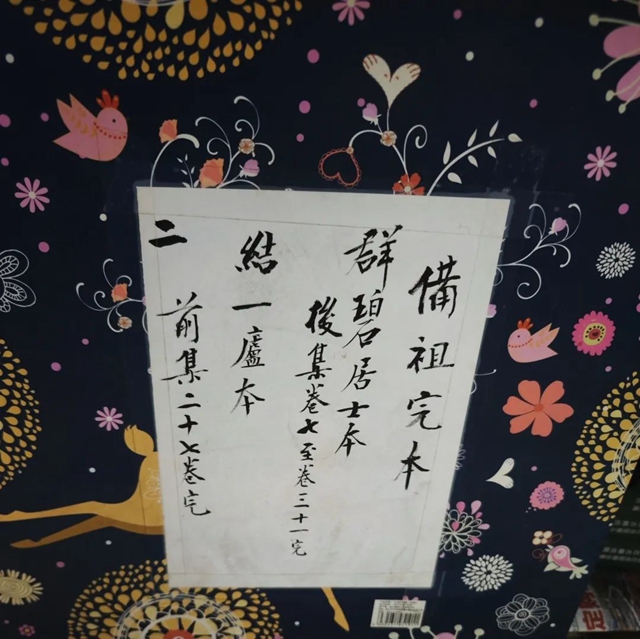 備祖完本
群碧居士本
後集卷七至卷三十一完
結一廬本
前集二十七卷完
二